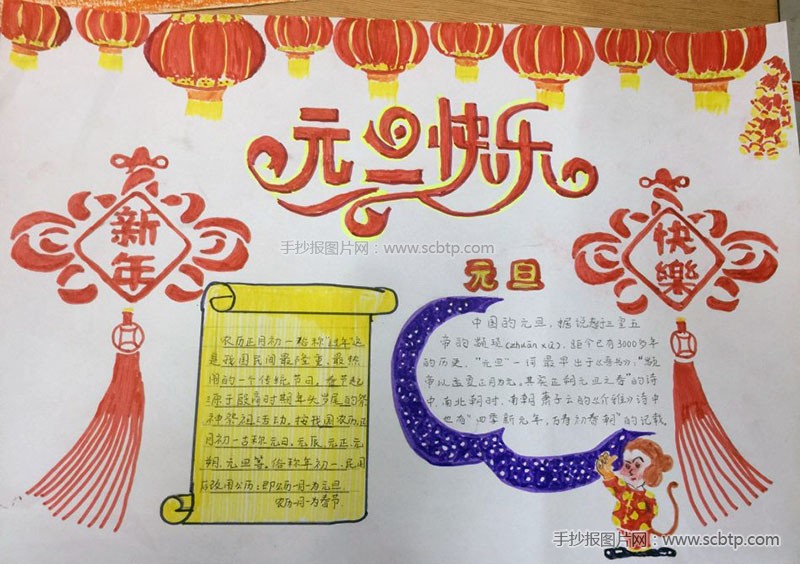 元旦快乐
新年
快樂
手抄报图片网：www.scbtp.com
元旦
农历正月初一俗称"过年"这
是我国民间最隆重、最热
闹的一个传统节日。春节起
源于殷商时期年头岁尾的祭
神祭祖活动。按我国农历正
月初一古称元日、元辰、元正、元
朔、元旦等。俗称年初一，民国
改用公历：即公历一月一为元旦
农历一月一为春节
中国的元旦，据说起于三皇五
帝的颛顼（zhuān xū），距今已有3000多年
的历史。"元旦"一词最早出于《晋书》："颛
帝以孟夏正月为元，其实正朔元旦之春"的诗
中。南北朝时，南朝萧子云的《介雅》诗中
也有"四季新元旦，万寿初春朝"的记载。
手抄报图片网：www.scbtp.com